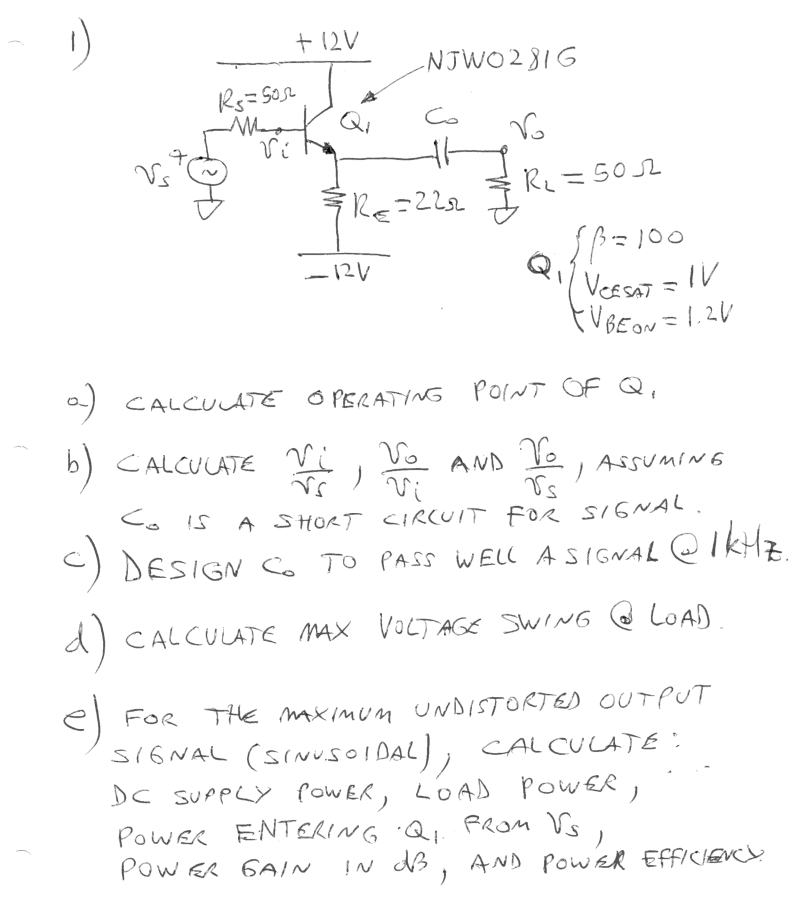 1)
+12V
NJW0281G
Rs=50Ω
Q1
Co
Vo
Vi
Vs
+
RL=50Ω
RE=22Ω
-12V
Q1 { β=100
VCESAT = 1V
VBEON = 1.2V
a) CALCULATE OPERATING POINT OF Q1
b) CALCULATE Vi/Vs, Vo/Vi AND Vo/Vs, ASSUMING
Co IS A SHORT CIRCUIT FOR SIGNAL.
c) DESIGN Co TO PASS WELL A SIGNAL @ 1kHz.
d) CALCULATE MAX VOLTAGE SWING @ LOAD.
e) FOR THE MAXIMUM UNDISTORTED OUTPUT
SIGNAL (SINUSOIDAL), CALCULATE:
DC SUPPLY POWER, LOAD POWER,
POWER ENTERING Q1 FROM Vs,
POWER GAIN IN dB, AND POWER EFFICIENCY.